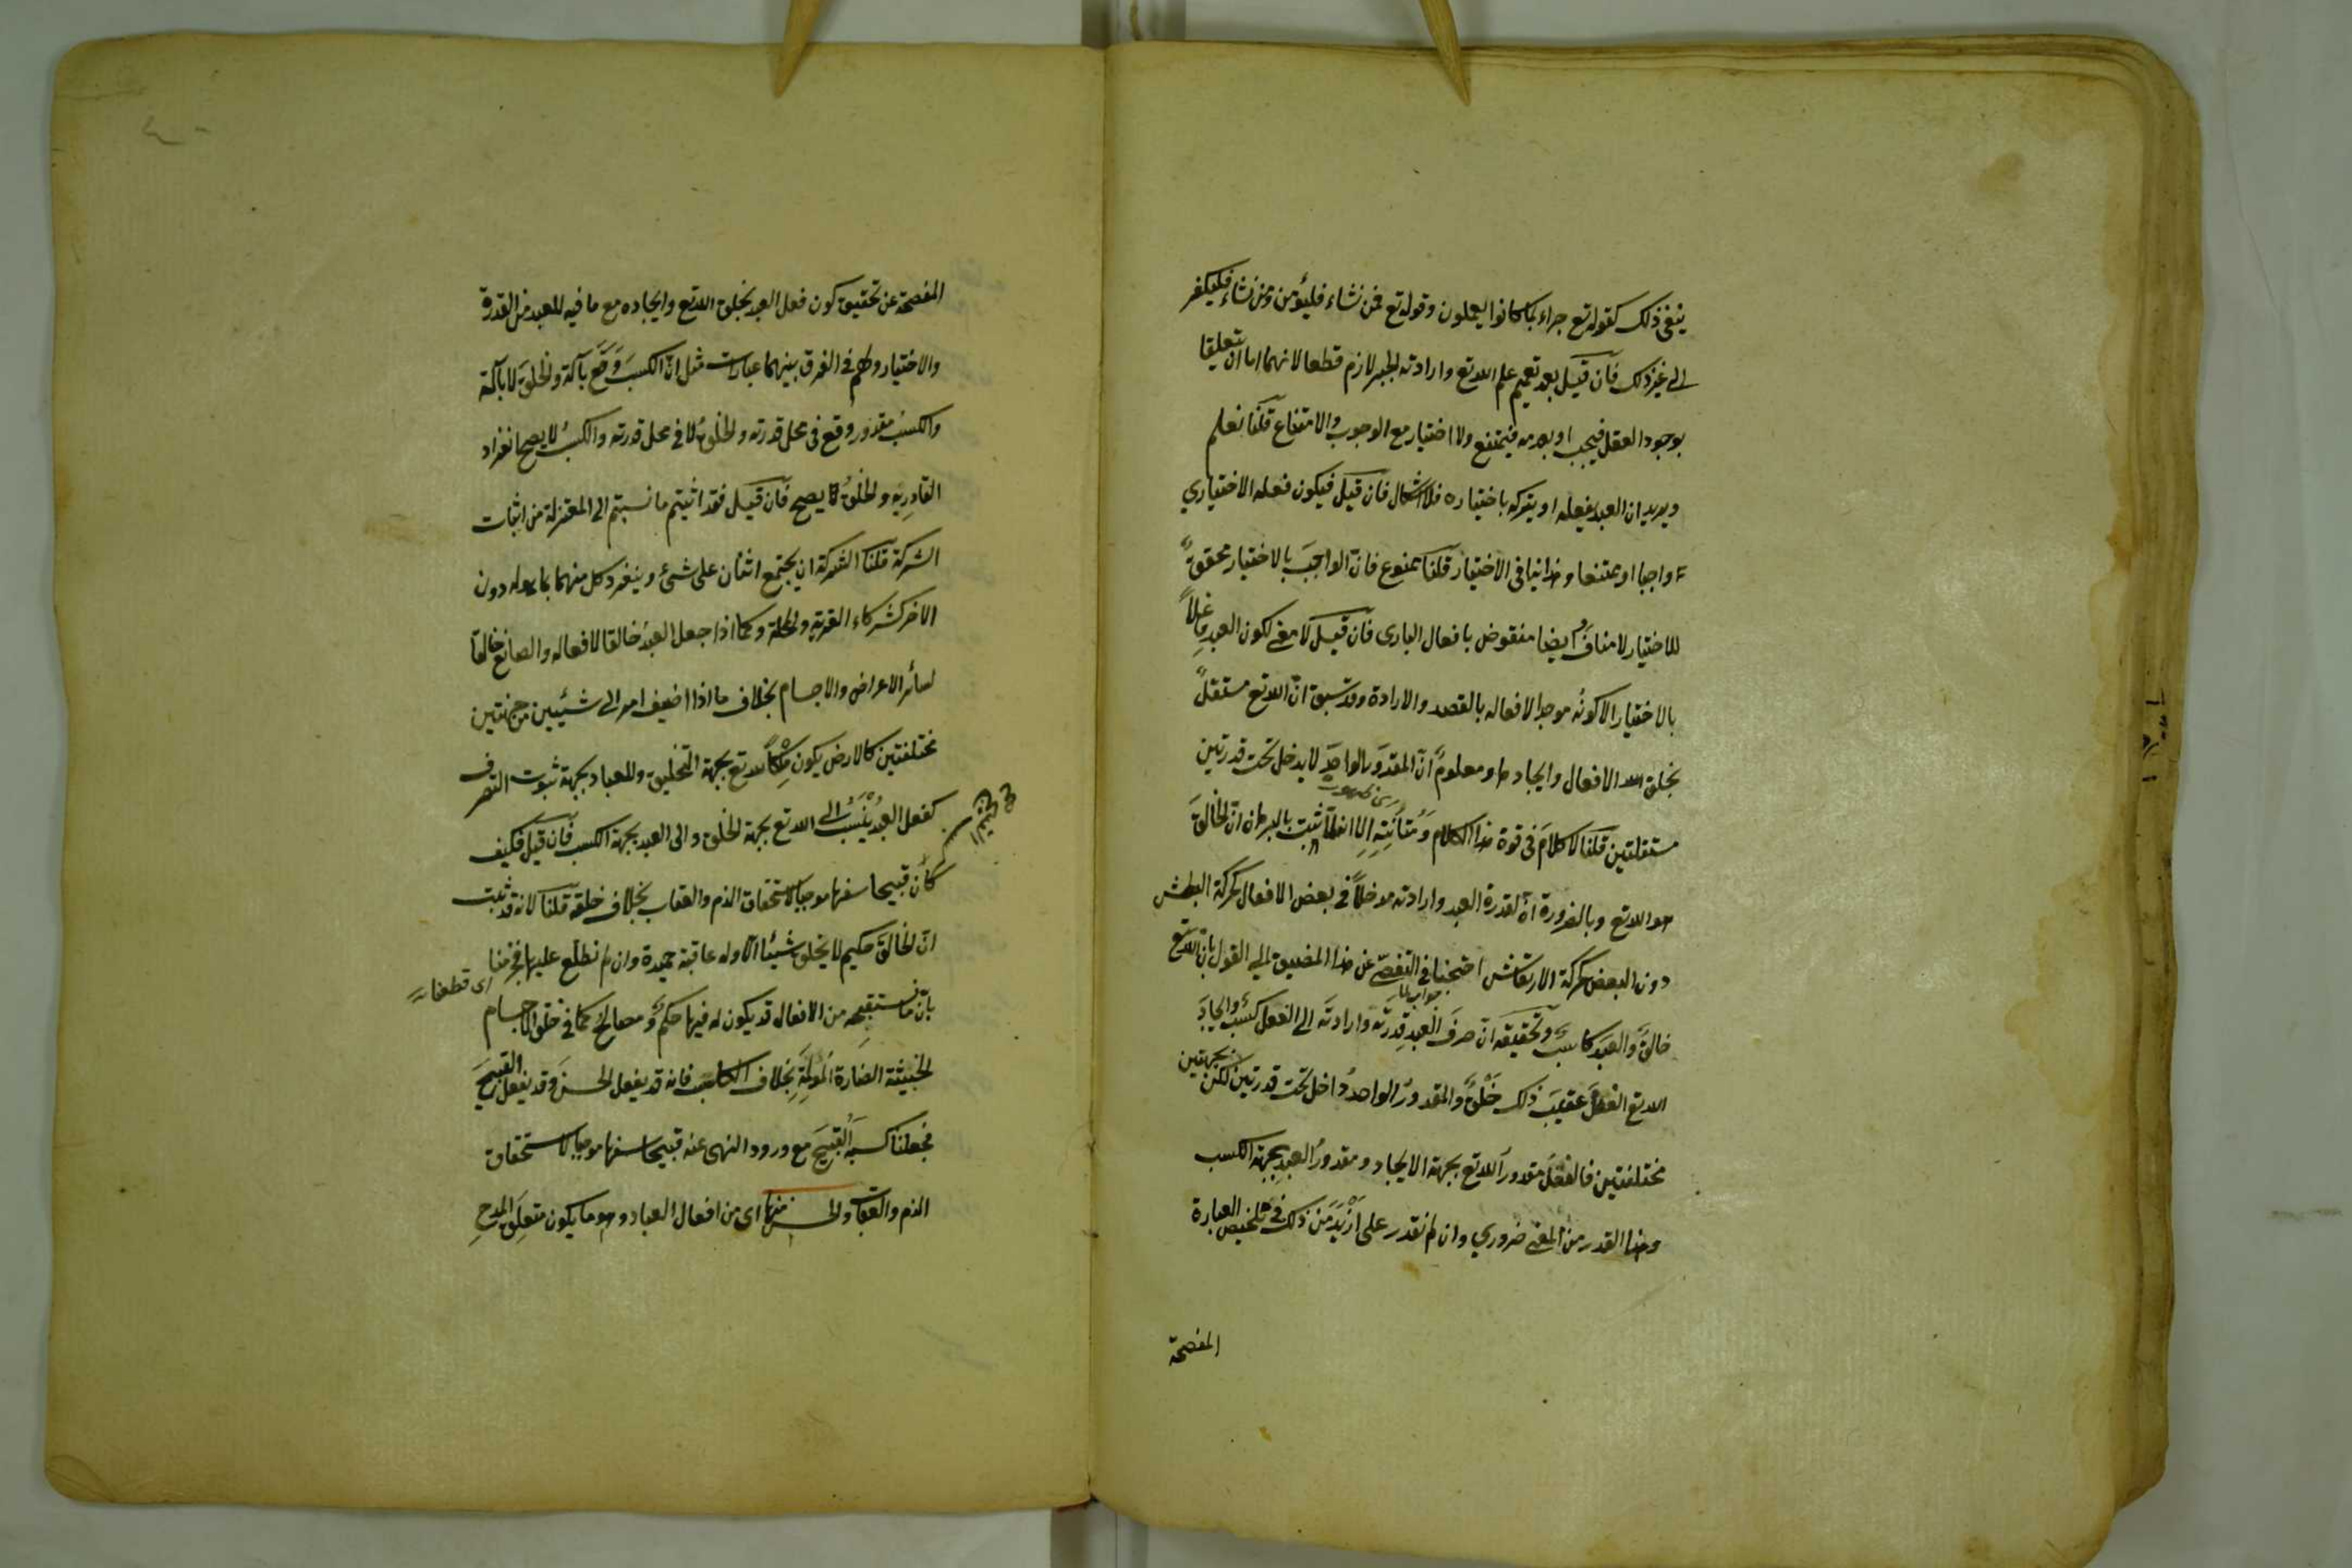 ينفي ذلك كقوله تع جزاء بما كانوا يعملون وقوله تع فمن شاء فليؤمن ومن شاء فليكفر
الى غير ذلك فان قيل بعد تعميم علم الله تع وارادته الجبر لازم قطعا لانهما اما ان يتعلقا
بوجود الفعل فيجب او بعدمه فيمتنع ولا اختيار مع الوجوب والامتناع قلنا نعلم
ويريد ان العبد يفعله او يتركه باختياره فلا اشكال فان قيل فيكون فعله الاختياري
واجبا او ممتنعا وهذا ينافي الاختيار قلنا ممنوع فان الواجب بالاختيار محقق
للاختيار لا مناف وايضا منقوض بافعال الباري فان قيل لا معنى لكون العبد فاعلا
بالاختيار الا كونه موجدا لافعاله بالقصد والارادة وقد سبق ان الله تع مستقل
بخلق الله الافعال وايجادها ومعلوم ان المقدور الواحد لا يدخل تحت قدرتين
مستقلتين قلنا لا كلام في قوة هذا الكلام ومتانته الا انه لما ثبت بالبرهان ان الخالق
هو الله تع وبالضرورة ان لقدرة العبد وارادته مدخلا في بعض الافعال كحركة البطش
دون البعض كحركة الارتعاش احتجنا في التفصي عن هذا المضيق الى القول بان الله تع
جواب لما
خالق والعبد كاسب وتحقيقه ان صرف العبد قدرته وارادته الى الفعل كسب وايجاد
الله تع الفعل عقيب ذلك خلق والمقدور الواحد داخل تحت قدرتين لكن بجهتين
مختلفتين فالفعل مقدور الله تع بجهة الايجاد ومقدور العبد بجهة الكسب
وهذا القدر من المعنى ضروري وان لم نقدر على ازيد من ذلك في تلخيص العبارة
المفصحة
المفصحة عن تحقيق كون فعل العبد بخلق الله تع وايجاده مع ما فيه للعبد من القدرة
والاختيار ولهم في الفرق بينهما عبارات مثل ان الكسب وقع بآلة والخلق لا بآلة
والكسب مقدور وقع في محل قدرته والخلق لا في محل قدرته والكسب لا يصح انفراد
القادر به والخلق يصح فان قيل فقد اثبتم ما نسبتم الى المعتزلة من اثبات
الشركة قلنا الشركة ان يجتمع اثنان على شيء وينفرد كل منهما بما هو له دون
الاخر كشركاء القرية والمحلة وكما اذا جعل العبد خالقا لافعاله والصانع خالقا
لسائر الاعراض والاجسام بخلاف ما اذا اضيف امر الى شيئين من جهتين
مختلفتين كالارض يكون ملكا لله تع بجهة التخليق وللعباد بجهة ثبوت التصرف
كفعل العبد ينسب الى الله تع بجهة الخلق والى العبد بجهة الكسب فان قيل فكيف
كان قبيحا سفها موجبا لاستحقاق الذم والعقاب بخلاف خلقه قلنا لانه قد ثبت
ان الخالق حكيم لا يخلق شيئا الا وله عاقبة حميدة وان لم نطلع عليها فجزمنا
اى قطعنا
بان ما نستقبحه من الافعال قد يكون له فيها حكم ومصالح كما في خلق الاجسام
الخبيثة الضارة المؤلمة بخلاف الكاسب فانه قد يفعل الحسن وقد يفعل القبيح
فجعلنا كسبه القبيح مع ورود النهي عنه قبيحا سفها موجبا لاستحقاق
الذم والعقاب والحسن منها اى من افعال العباد وهو ما يكون متعلق المدح